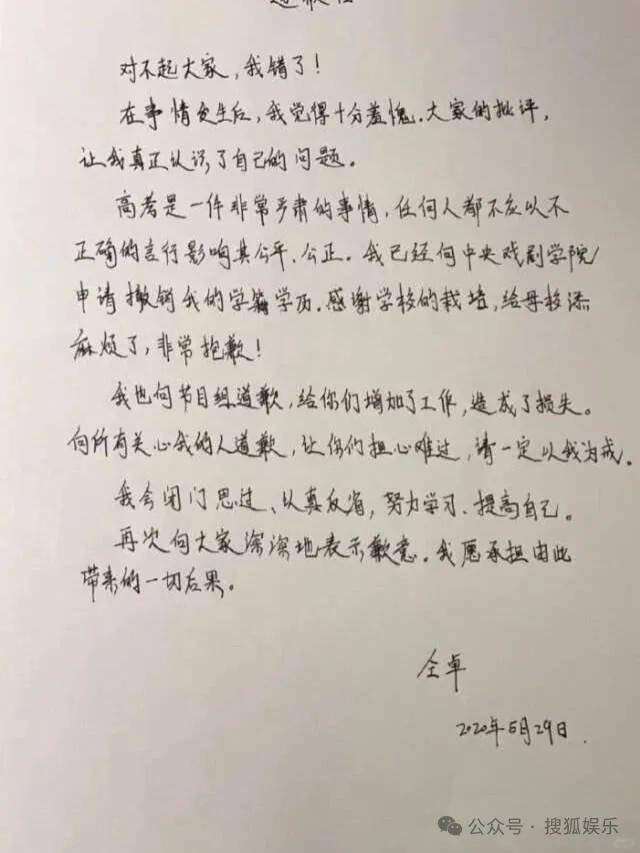 对不起大家，我错了！
在事情发生后，我觉得十分羞愧。大家的批评，
让我真正认识了自己的问题。
高考是一件非常严肃的事情，任何人都不应以不
正确的言行影响其公平、公正。我已经向中央戏剧学院
申请撤销我的学籍学历。感谢学校的栽培，给母校添
麻烦了，非常抱歉！
我也向节目组道歉，给你们增加了工作，造成了损失。
向所有关心我的人道歉，让你们担心难过，请一定以我为戒。
我会闭门思过、认真反省，努力学习、提高自己。
再次向大家深深地表示歉意。我愿承担由此
带来的一切后果。
仝卓
2020年5月29日
公众号·搜狐娱乐